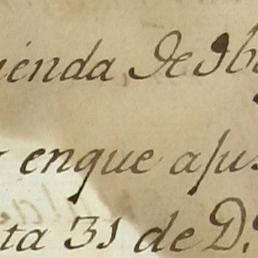 ienda de 9b
enque ajus
ta 31 de D.